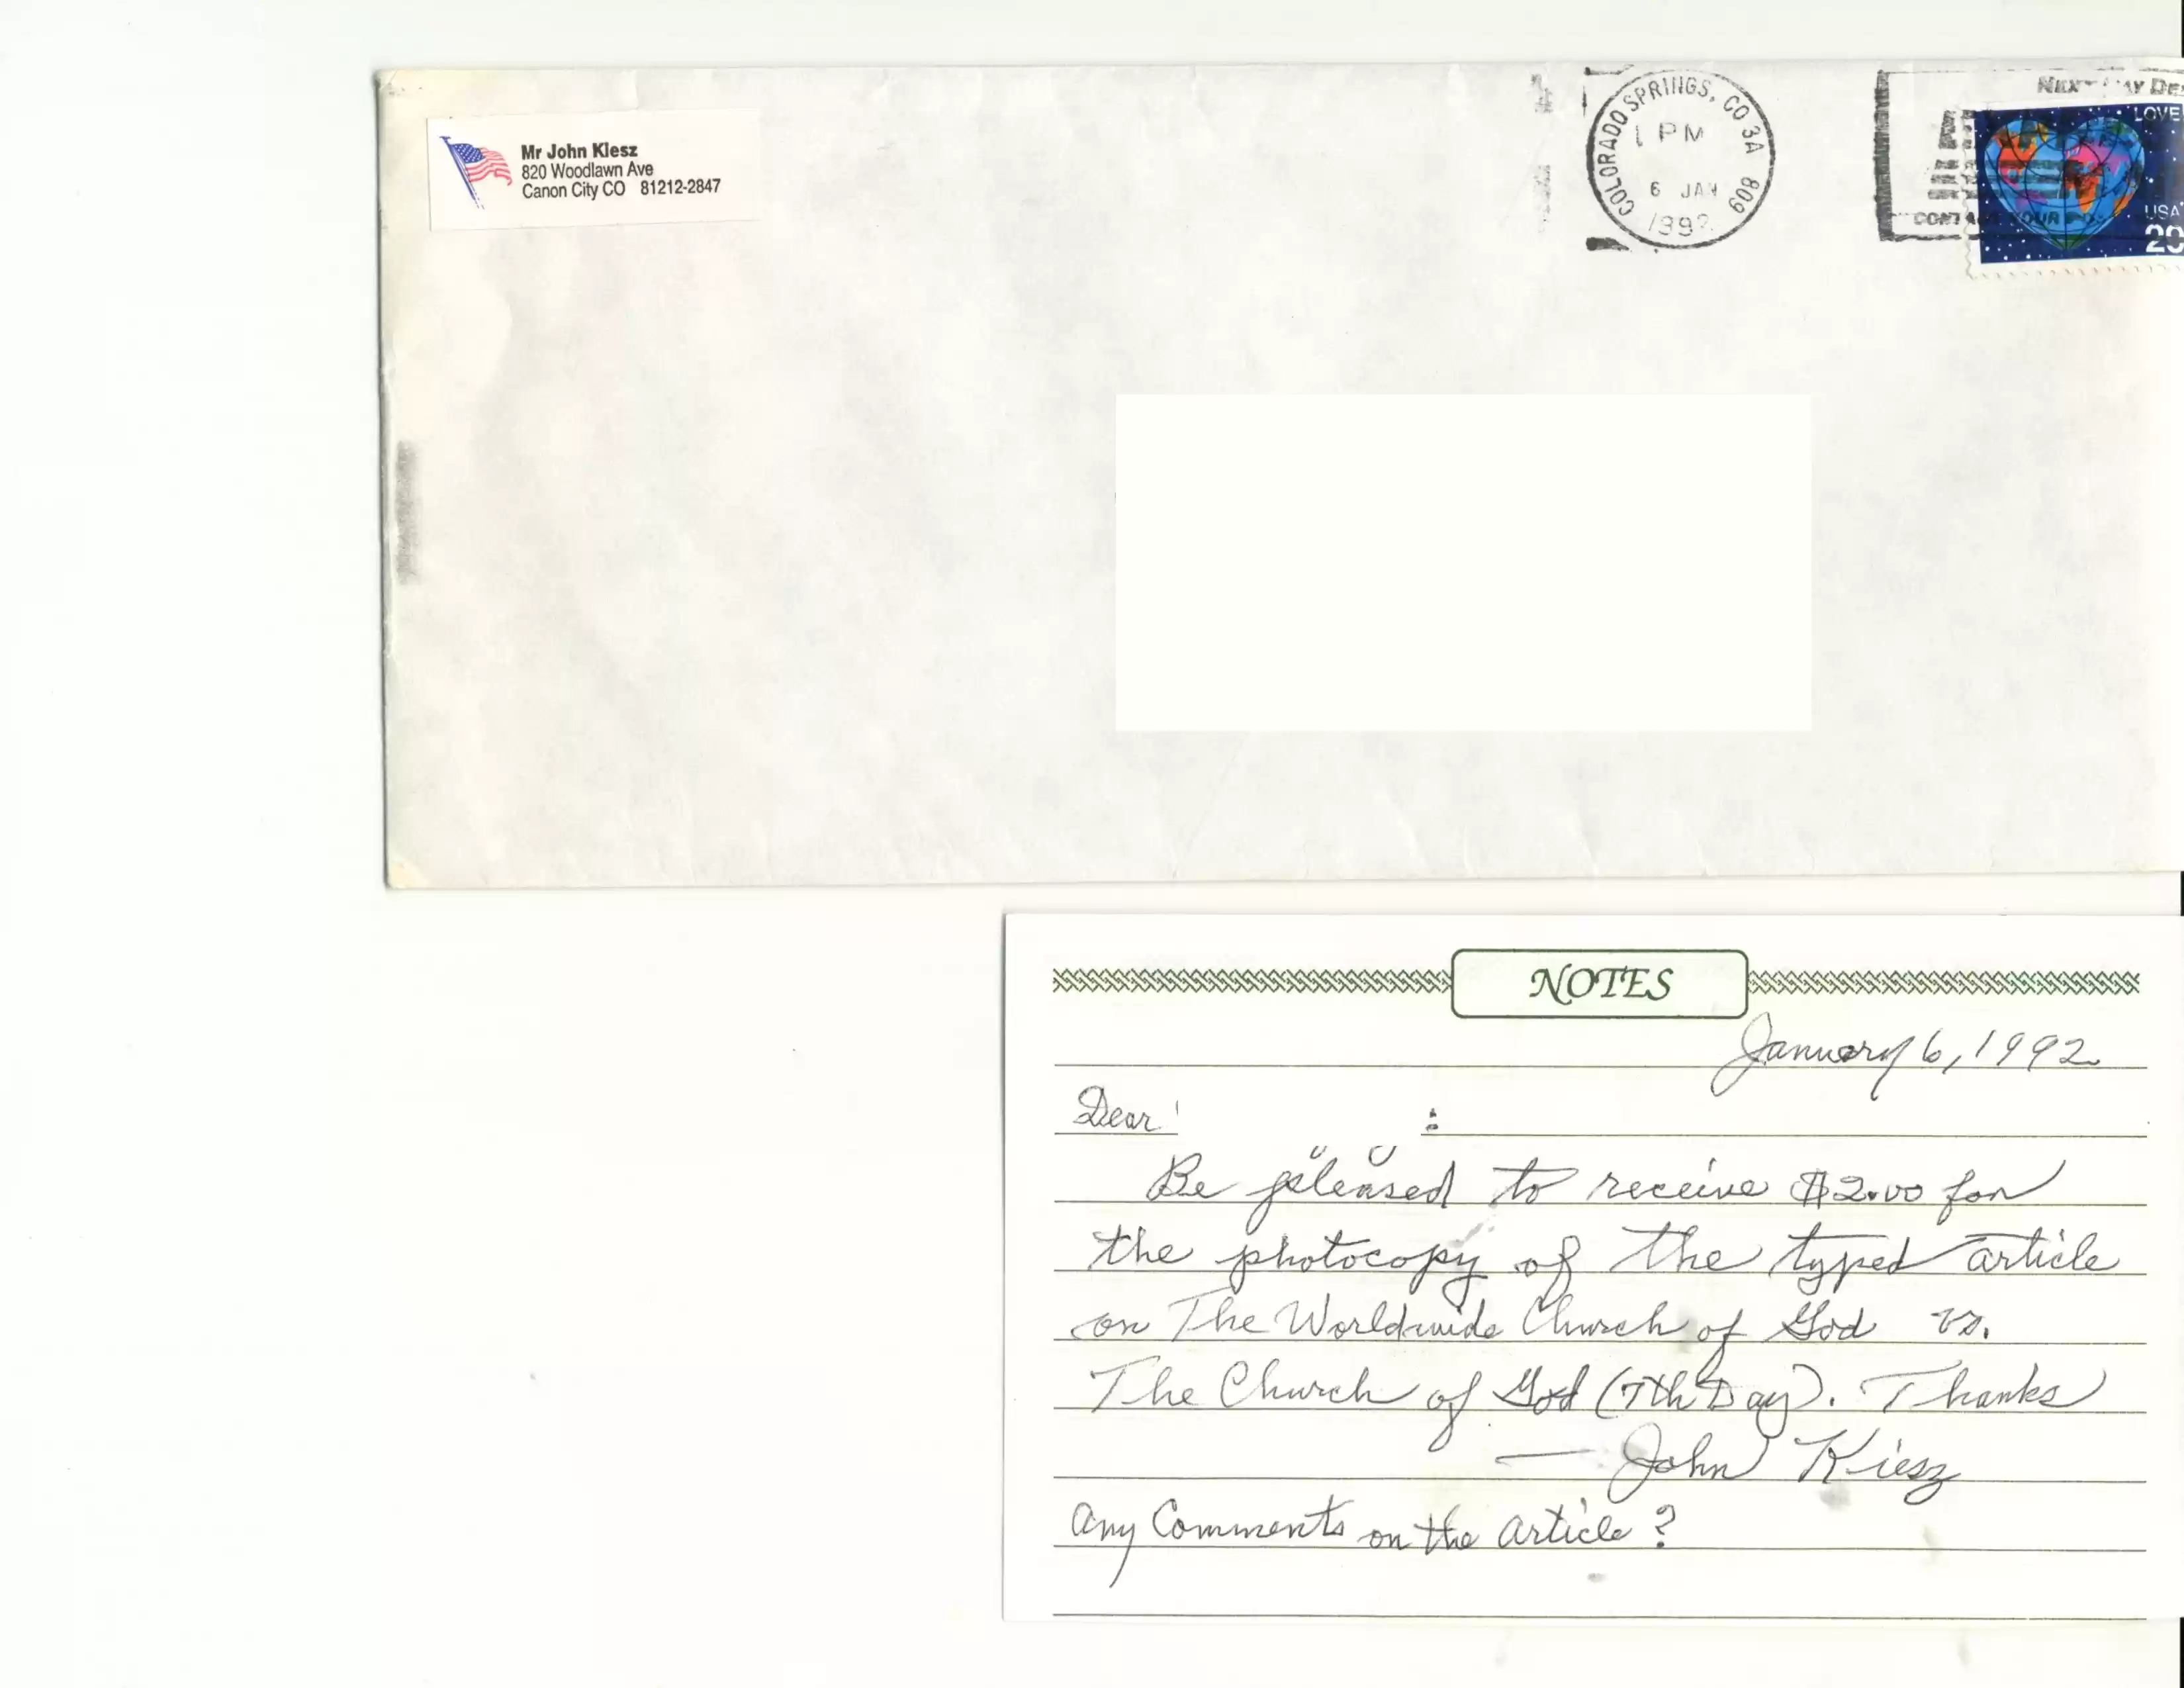 Mr John Kiesz
820 Woodlawn Ave
Canon City CO 81212-2847
COLORADO SPRINGS, CO 3A 809
1 PM
6 JAN
1992
LOVE
USA
NOTES
January 6, 1992
Dear
:
Be pleased to receive $2.00 for
the photocopy of the typed article
on The Worldwide Church of God vs.
The Church of God (7th Day). Thanks
— John Kiesz
Any Comments on the article?